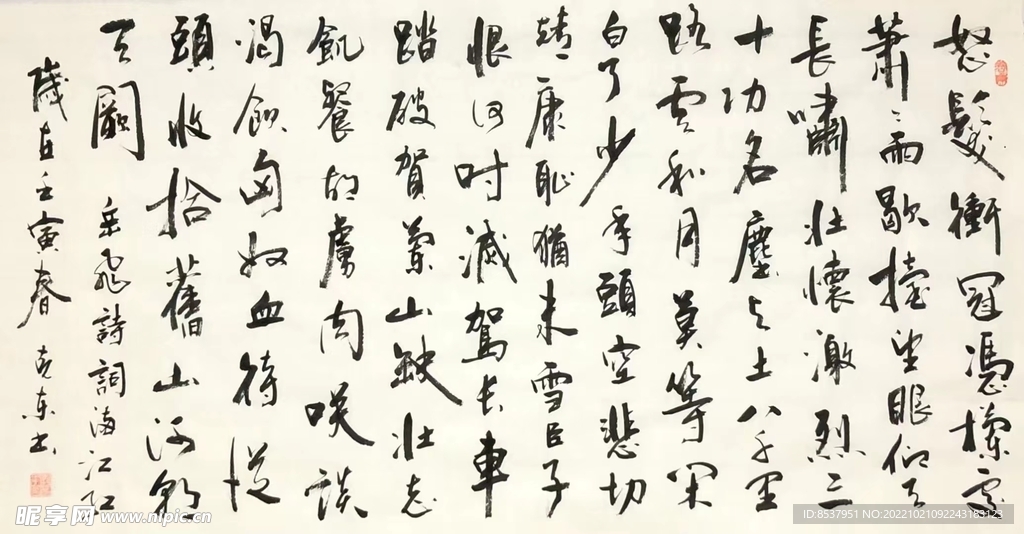 怒髮衝冠憑欄處
蕭〻雨歇擡望眼仰天
長嘯壯懷激烈三
十功名塵与土八千里
路雲和月莫等閑
白了少年頭空悲切
靖康恥猶未雪臣子
恨何时滅駕長車
踏破賀蘭山缺壯志
飢餐胡虜肉笑談
渴飲匈奴血待從
頭收拾舊山河朝
天闕
岳飛詩詞滿江紅
歲在壬寅春 克东书
昵享网 www.nipic.cn
ID:8537951 NO:20221021092243183123